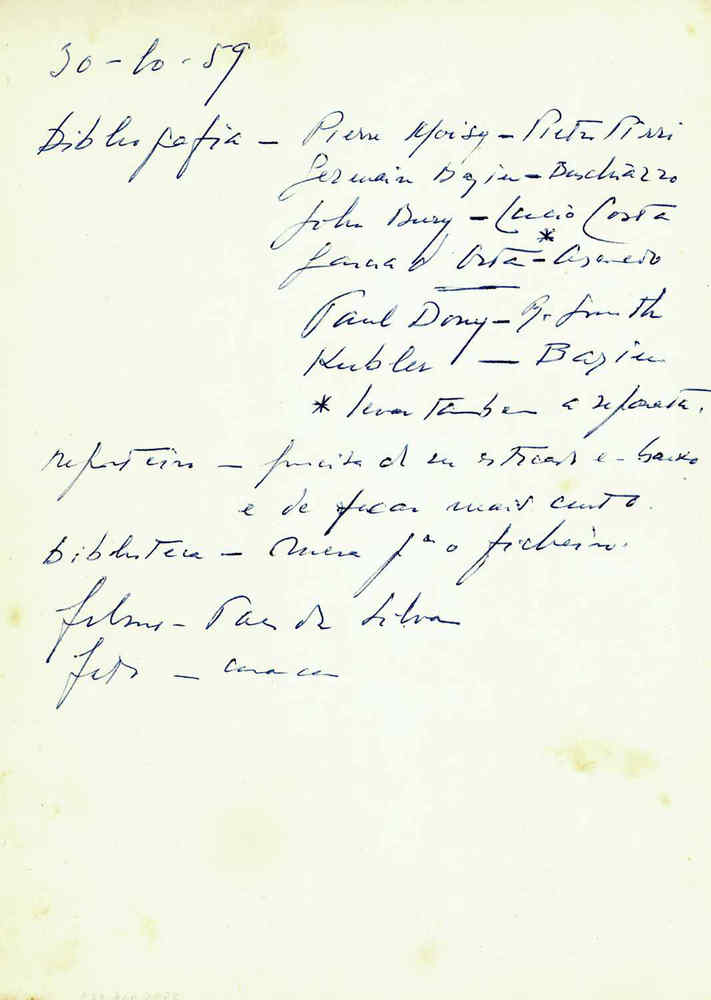 30-10-59
Bibliografia — Pierre Moisy — Pietro Pirri
Germain Bazin — Buschiazzo
John Bury — Lucio Costa
Garcia d'Orta * — Azevedo
Paul Dony — R. Smith
Kubler — Bazin
* levar tambem a separata.
reposteiro — precisa de ser esticado em baixo
e de ficar mais curto.
Biblioteca — Mesa pª o ficheiro.
filme — Paes da Silva
foto —